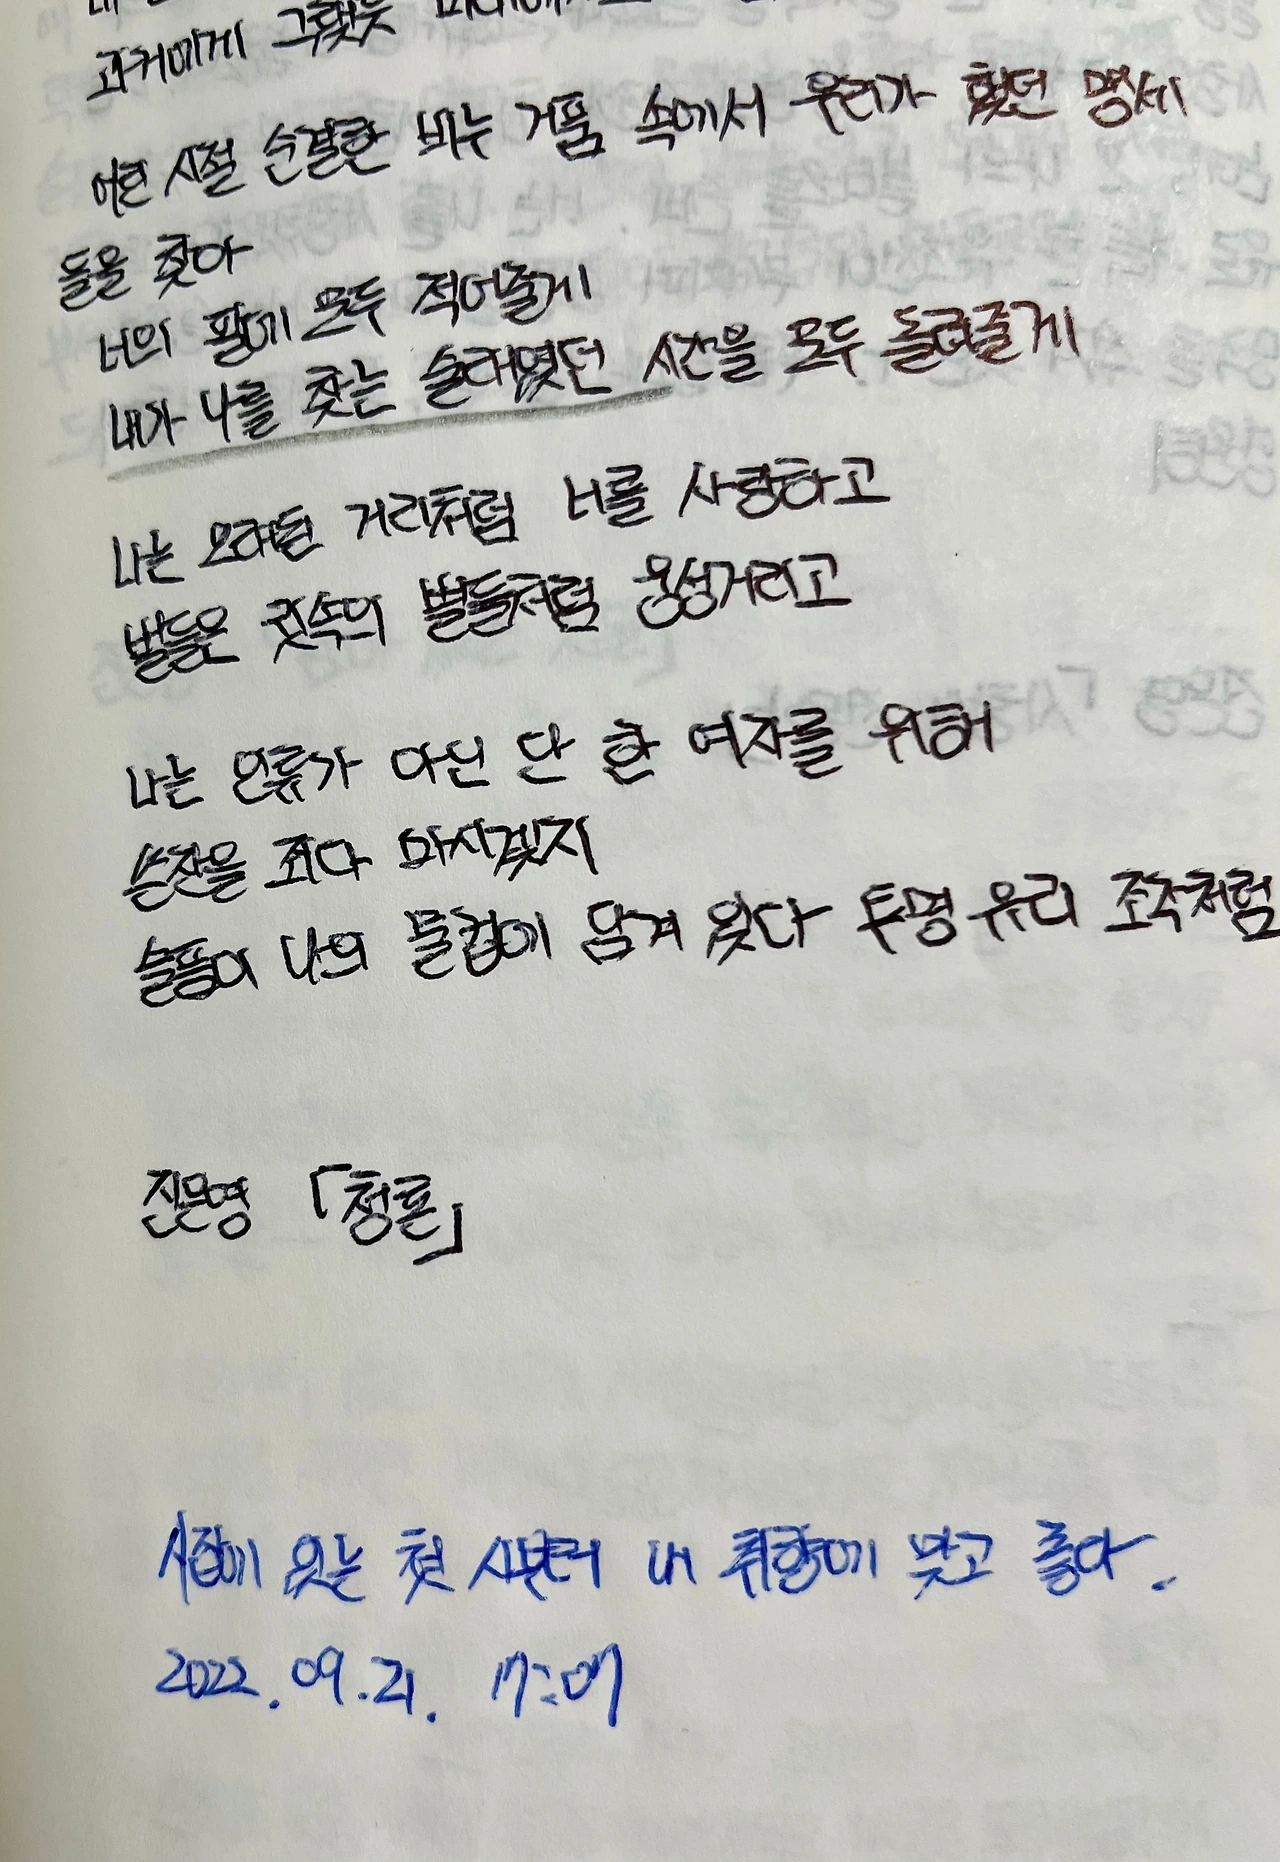 과거에게 그랬듯
어린 시절 순결한 비누 거품 속에서 우리가 했던 맹세
들을 찾아
너의 팔에 모두 적어줄게
내가 나를 찾는 술래였던 시간을 모두 돌려줄게
나는 오래된 거리처럼 너를 사랑하고
별들은 귓속의 별들처럼 웅성거리고
나는 인류가 아닌 단 한 여자를 위해
쓴잔을 죄다 마시겠지
슬픔이 나의 물컵에 담겨 있다 투명 유리 조각처럼
진은영 「청혼」
시집에 있는 첫 시부터 내 취향에 맞고 좋아.
2022.09.21. 17:07